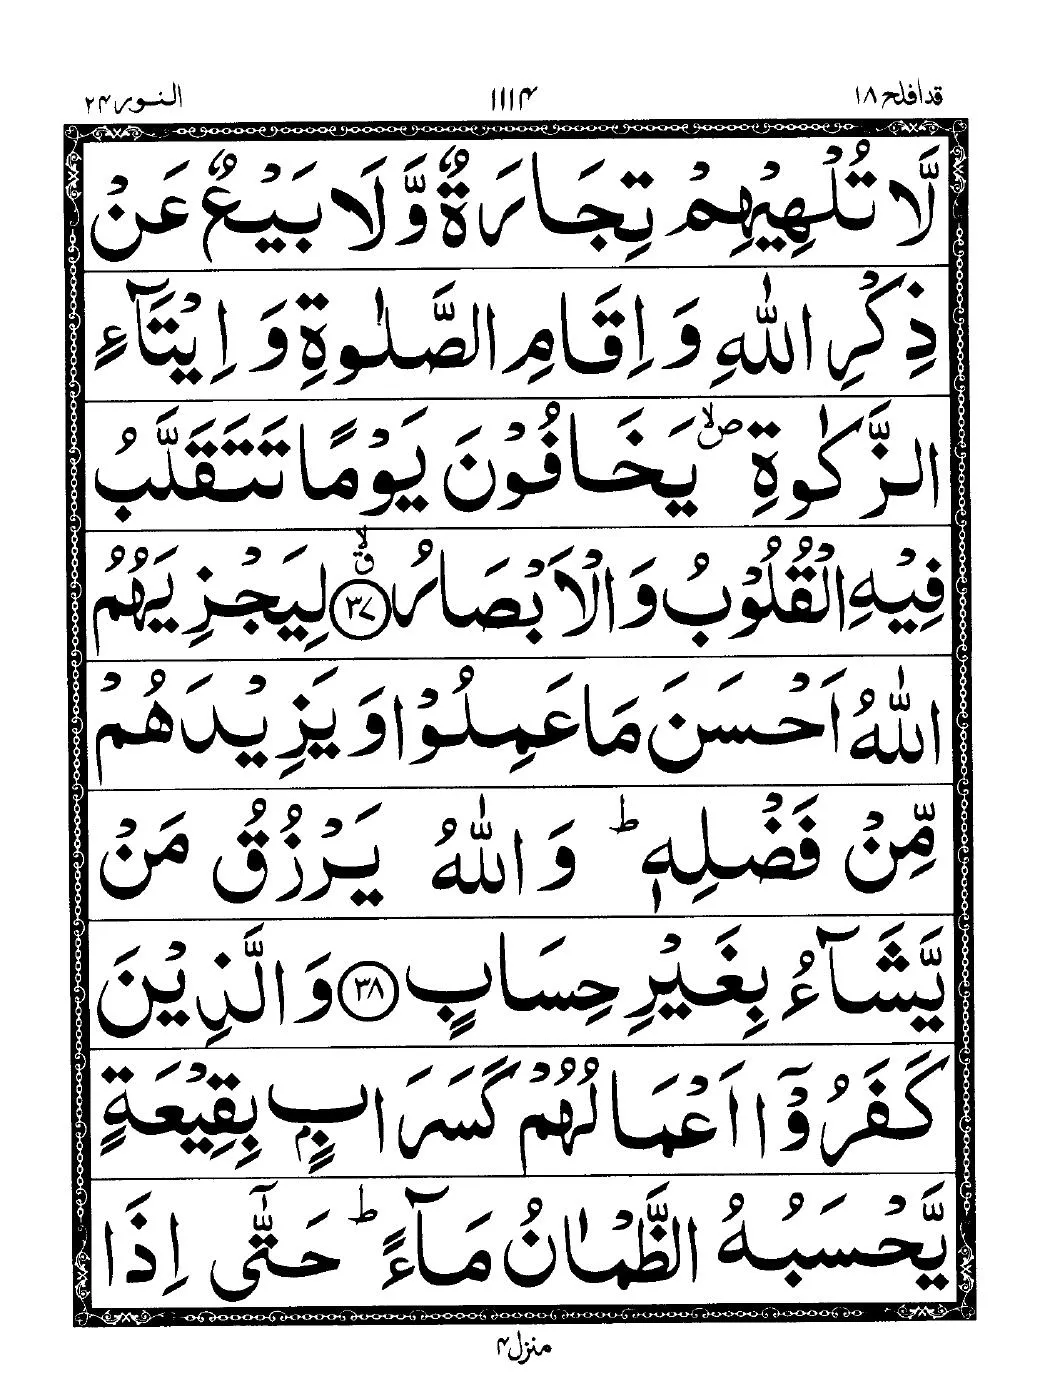 قد افلح ۱۸ ۱۱۱۴ النور ۲۴
لَّا تُلْهِيْهِمْ تِجَارَةٌ وَّلَا بَيْعٌ عَنْ
ذِكْرِ اللّٰهِ وَ اِقَامِ الصَّلٰوةِ وَ اِيْتَآءِ
الزَّكٰوةِ ۪ۙ يَخَافُوْنَ يَوْمًا تَتَقَلَّبُ
فِيْهِ الْقُلُوْبُ وَ الْاَبْصَارُ ﴿۳۷﴾ ۙق لِيَجْزِيَهُمُ
اللّٰهُ اَحْسَنَ مَا عَمِلُوْا وَ يَزِيْدَهُمْ
مِّنْ فَضْلِهٖ ؕ وَ اللّٰهُ يَرْزُقُ مَنْ
يَّشَآءُ بِغَيْرِ حِسَابٍ ﴿۳۸﴾ وَ الَّذِيْنَ
كَفَرُوْۤا اَعْمَالُهُمْ كَسَرَابٍۭ بِقِيْعَةٍ
يَّحْسَبُهُ الظَّمْاٰنُ مَآءً ؕ حَتّٰۤى اِذَا
منزل ۴